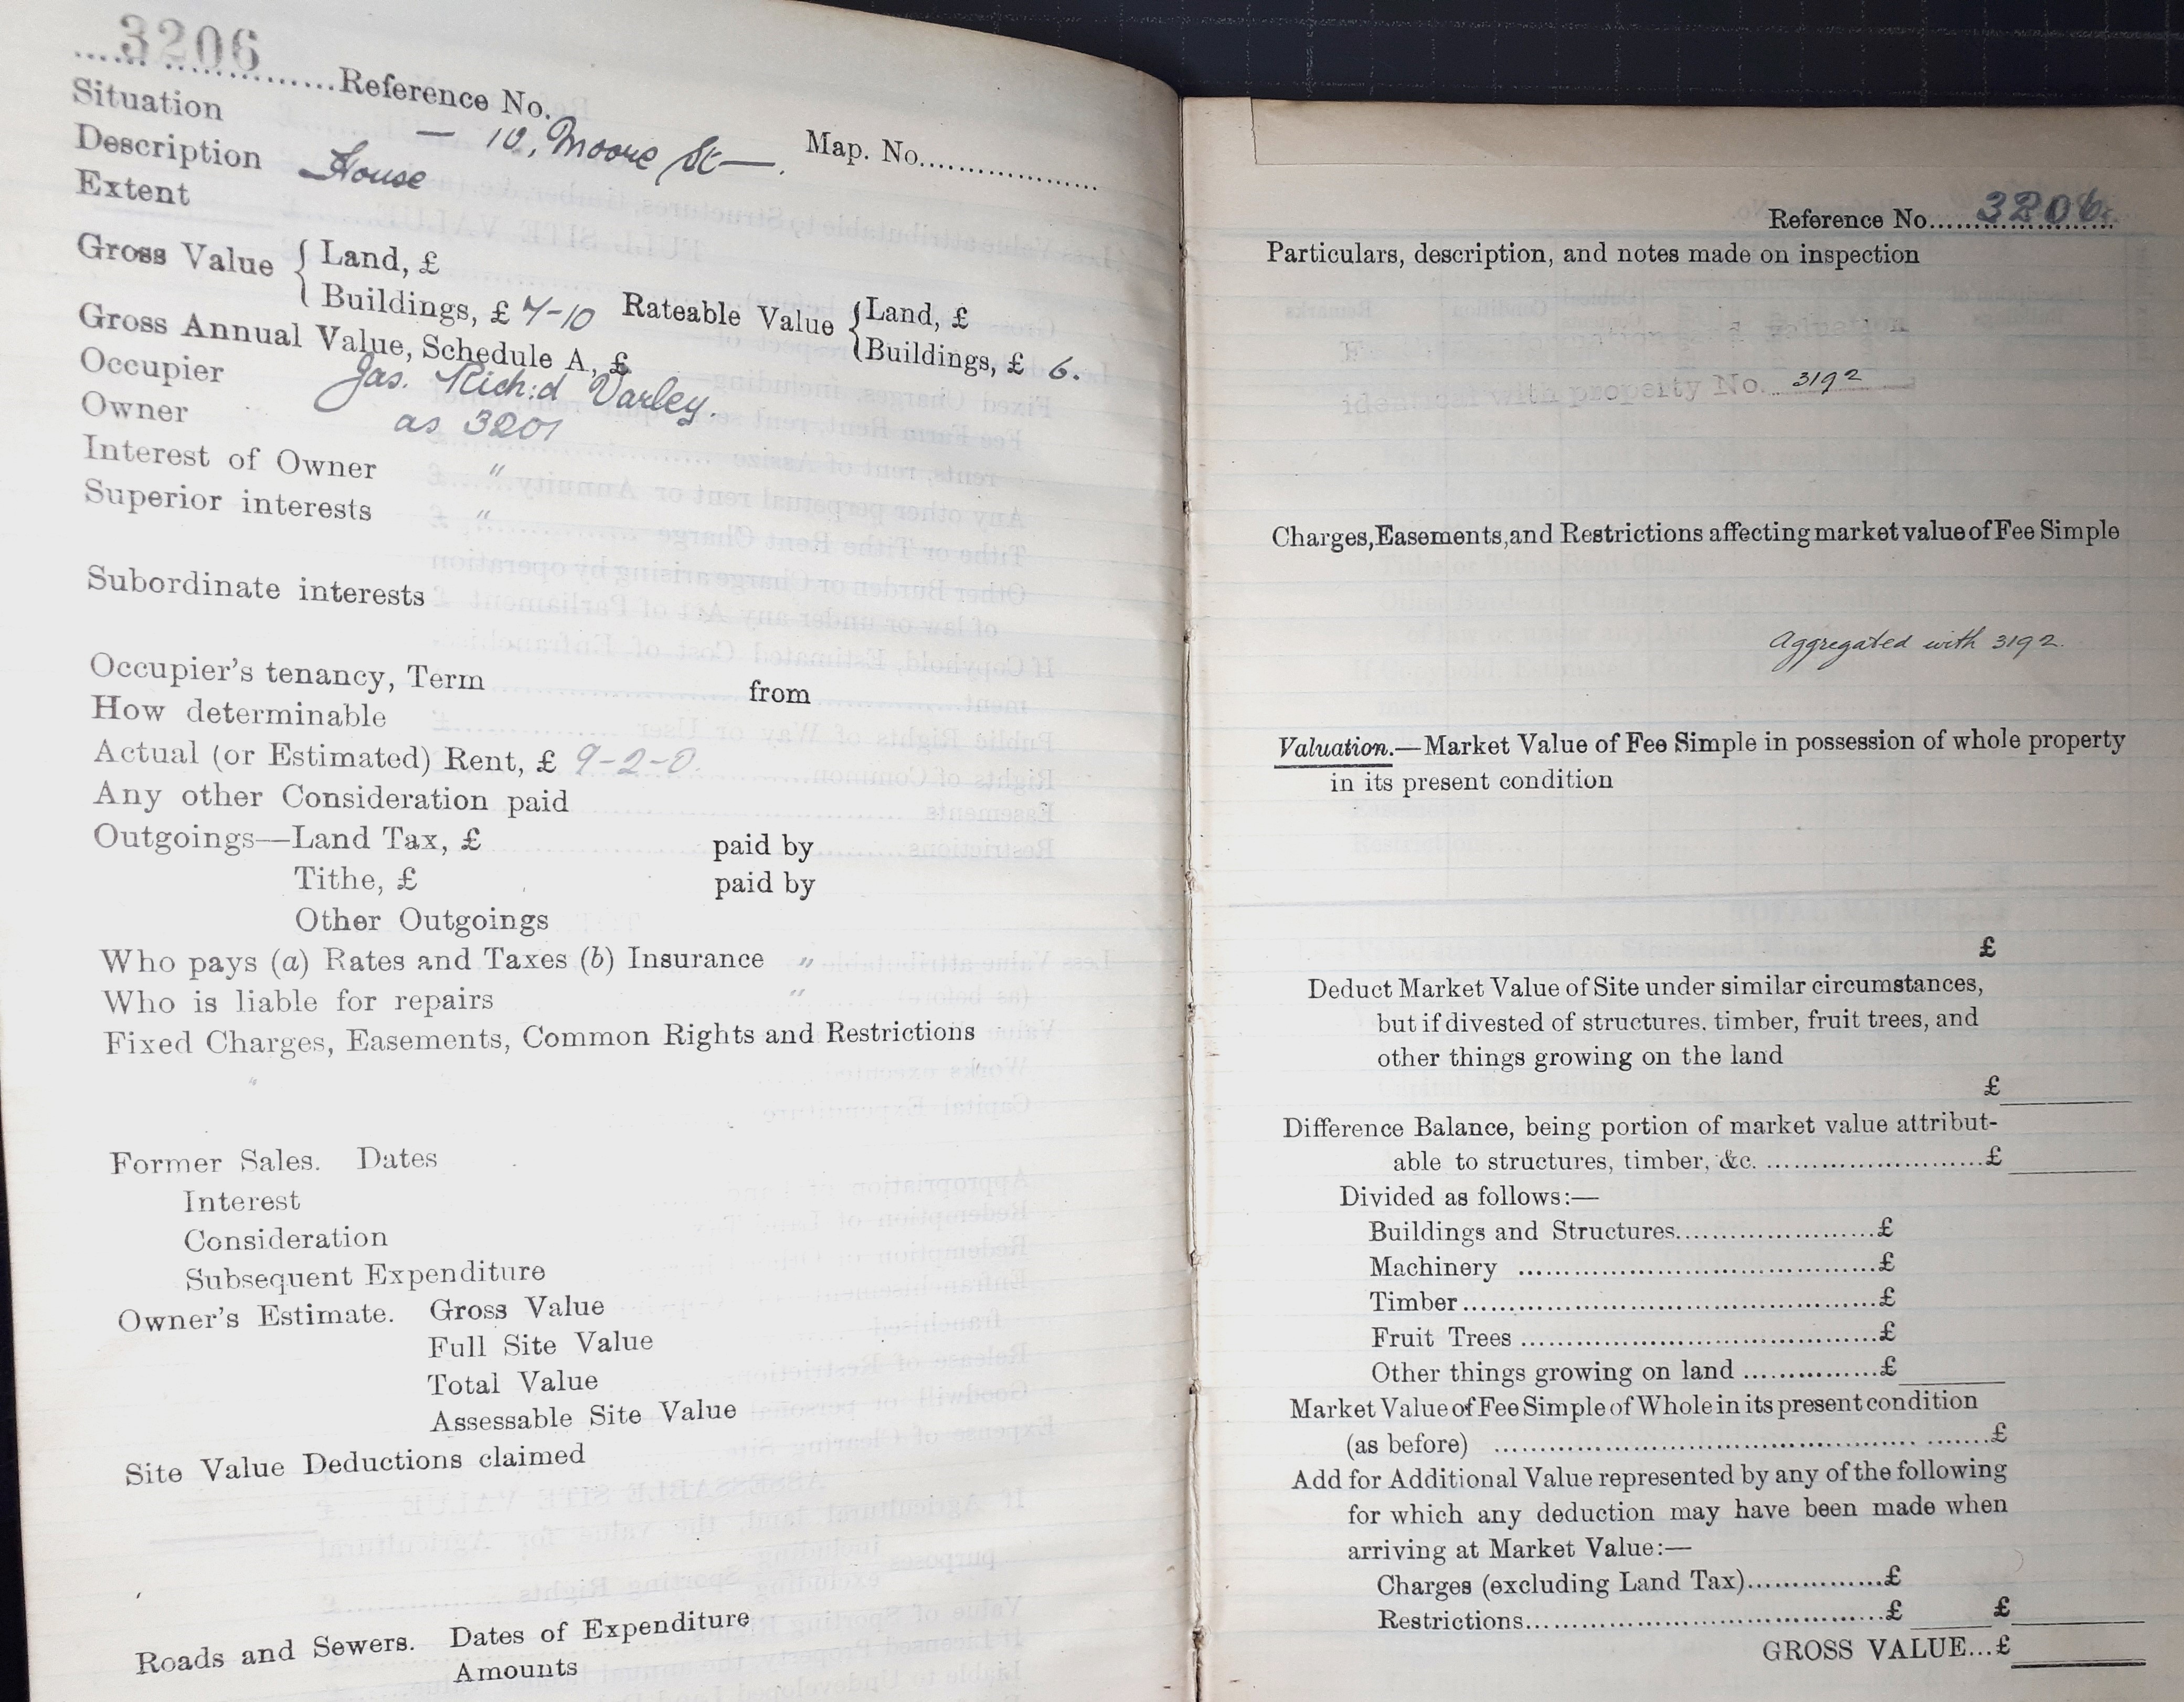 3206
Reference No.
Map. No.
Situation — 10, Moore St —.
Description House
Extent
Gross Value { Land, £
Buildings, £ 7-10 Rateable Value { Land, £
Buildings, £ 6.
Gross Annual Value, Schedule A, £
Occupier Jas. Rich:d Varley.
Owner as 3201
Interest of Owner "
Superior interests "
Subordinate interests
Occupier's tenancy, Term from
How determinable
Actual (or Estimated) Rent, £ 9-2-0.
Any other Consideration paid
Outgoings—Land Tax, £ paid by
Tithe, £ paid by
Other Outgoings
Who pays (a) Rates and Taxes (b) Insurance "
Who is liable for repairs "
Fixed Charges, Easements, Common Rights and Restrictions
"
Former Sales. Dates
Interest
Consideration
Subsequent Expenditure
Owner's Estimate. Gross Value
Full Site Value
Total Value
Assessable Site Value
Site Value Deductions claimed
Roads and Sewers. Dates of Expenditure
Amounts
Reference No. 3206.
Particulars, description, and notes made on inspection
valuation
identical with property No. 3192
Charges, Easements, and Restrictions affecting market value of Fee Simple
Aggregated with 3192.
Valuation.—Market Value of Fee Simple in possession of whole property
in its present condition
£
Deduct Market Value of Site under similar circumstances,
but if divested of structures, timber, fruit trees, and
other things growing on the land
£
Difference Balance, being portion of market value attribut-
able to structures, timber, &c. £
Divided as follows:—
Buildings and Structures £
Machinery £
Timber £
Fruit Trees £
Other things growing on land £
Market Value of Fee Simple of Whole in its present condition
(as before) £
Add for Additional Value represented by any of the following
for which any deduction may have been made when
arriving at Market Value:—
Charges (excluding Land Tax) £
Restrictions £ £
GROSS VALUE... £